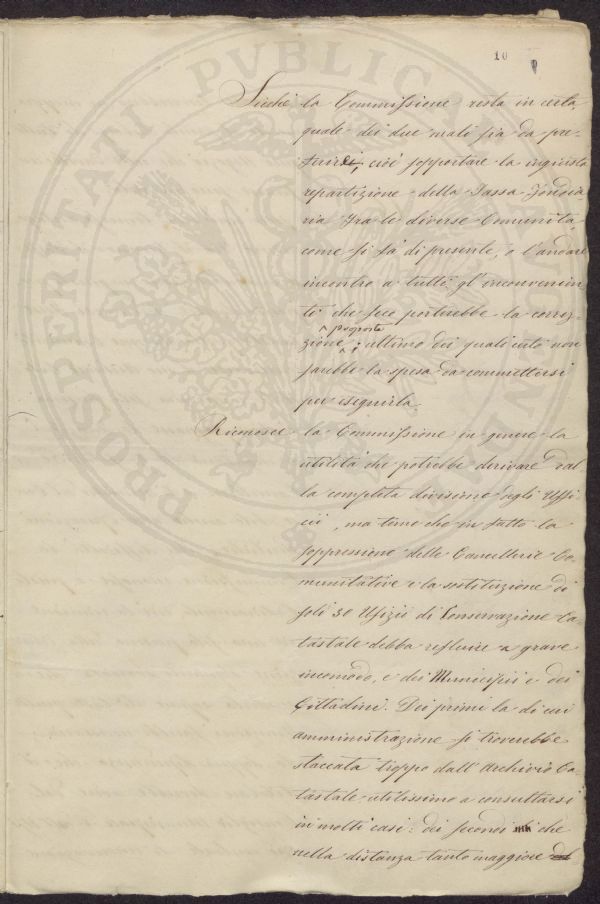 10
Sicchè la Commissione resta incerta,
quale dei due mali sia da pre-
ferirsi, cioè sopportare la ingiusta
repartizione della Tassa Fondia-
ria fra le diverse Comunità,
come si fà di presente, o l'andare
incontro a tutti gl'inconvenien-
ti che seco porterebbe la corre-
proposta
zione, ultimo dei quali certo non
sarebbe la spesa da commettersi
per eseguirla.
Riconosce la Commissione in genere la
utilità che potrebbe derivare dal
la completa divisione degli Uffi-
cii, ma teme che in fatto la
soppressione delle Cancellerie Co-
munitative e la sostituzione di
soli 30 Ufizii di Conservazione Ca-
tastale debba refluire a grave
incomodo, e dei Municipii e dei
Cittadini. Dei primi la di cui
amministrazione si troverebbe
staccata troppo dall'Archivio Ca-
tastale utilissimo a consultarsi
in molti casi: dei secondi che
nella distanza tanto maggiore
PROSPERITATI PVBLICAE